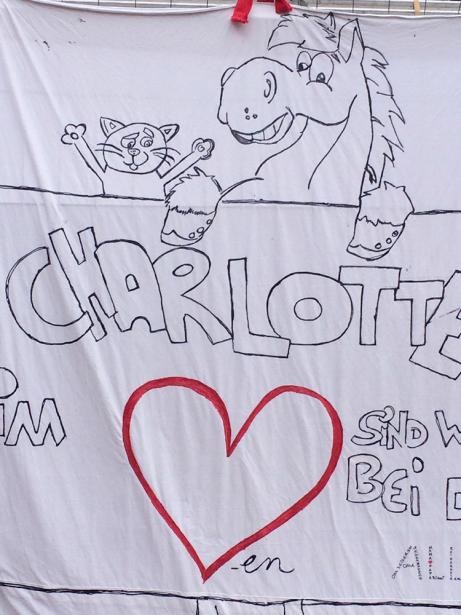 CHARLOTTE
iM
-en
SiND W
BEi D